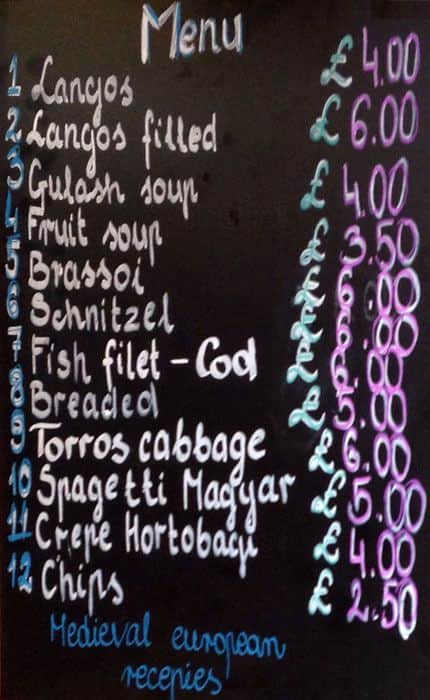 Menu
1 Langos £ 4.00
2 Langos filled £ 6.00
3 Gulash soup £ 4.00
4 Fruit soup £ 3.50
5 Brassoi £ 6.00
6 Schnitzel £
7 Fish filet - Cod £
8 Breaded £ 5.00
9 Torros cabbage £ 6.00
10 Spagetti Magyar £ 5.00
11 Crepe Hortobagyi £ 4.00
12 Chips £ 2.50
Medieval european
recepies